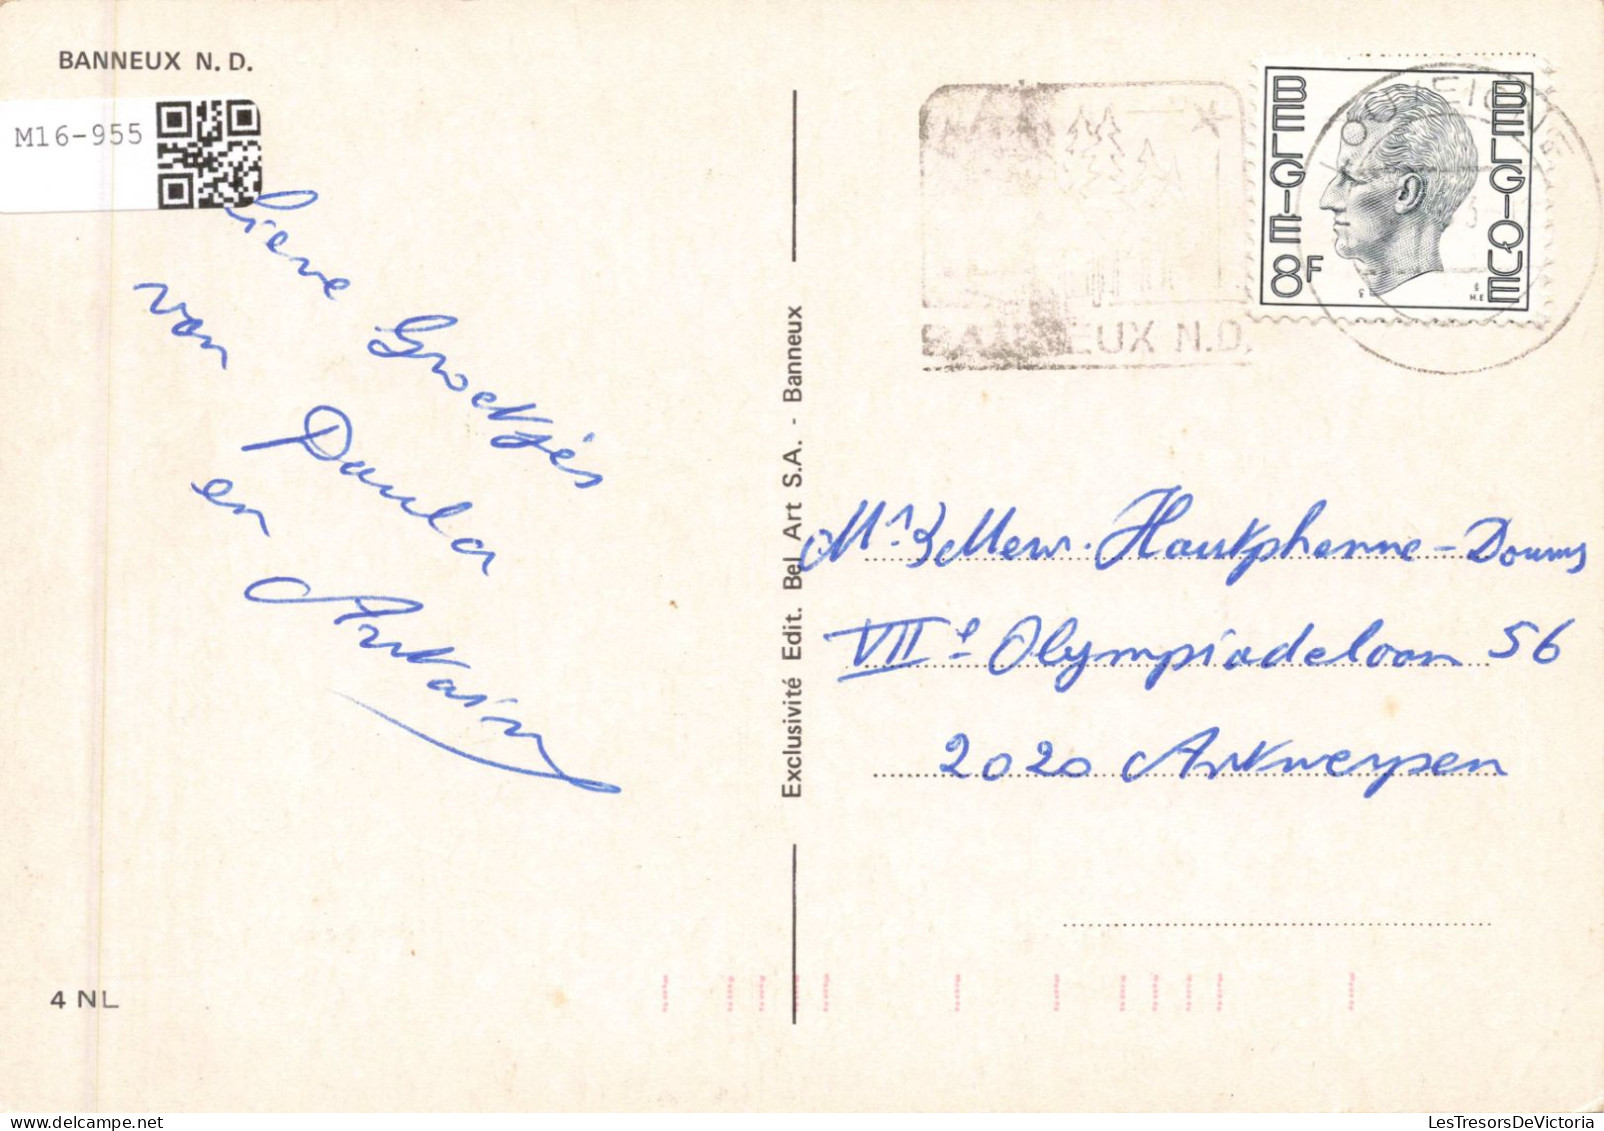 BANNEUX N. D.
M16-955
Lieve Groetjes
van Paula
en
Exclusivité Edit. Bel Art S.A. - Banneux
BELGIE 8F
BELGIQUE
BANNEUX N.D.
Mr & Mevr.
VIIe Olympiadelaan 56
2020 Antwerpen
4 NL
LesTresorsDeVictoria